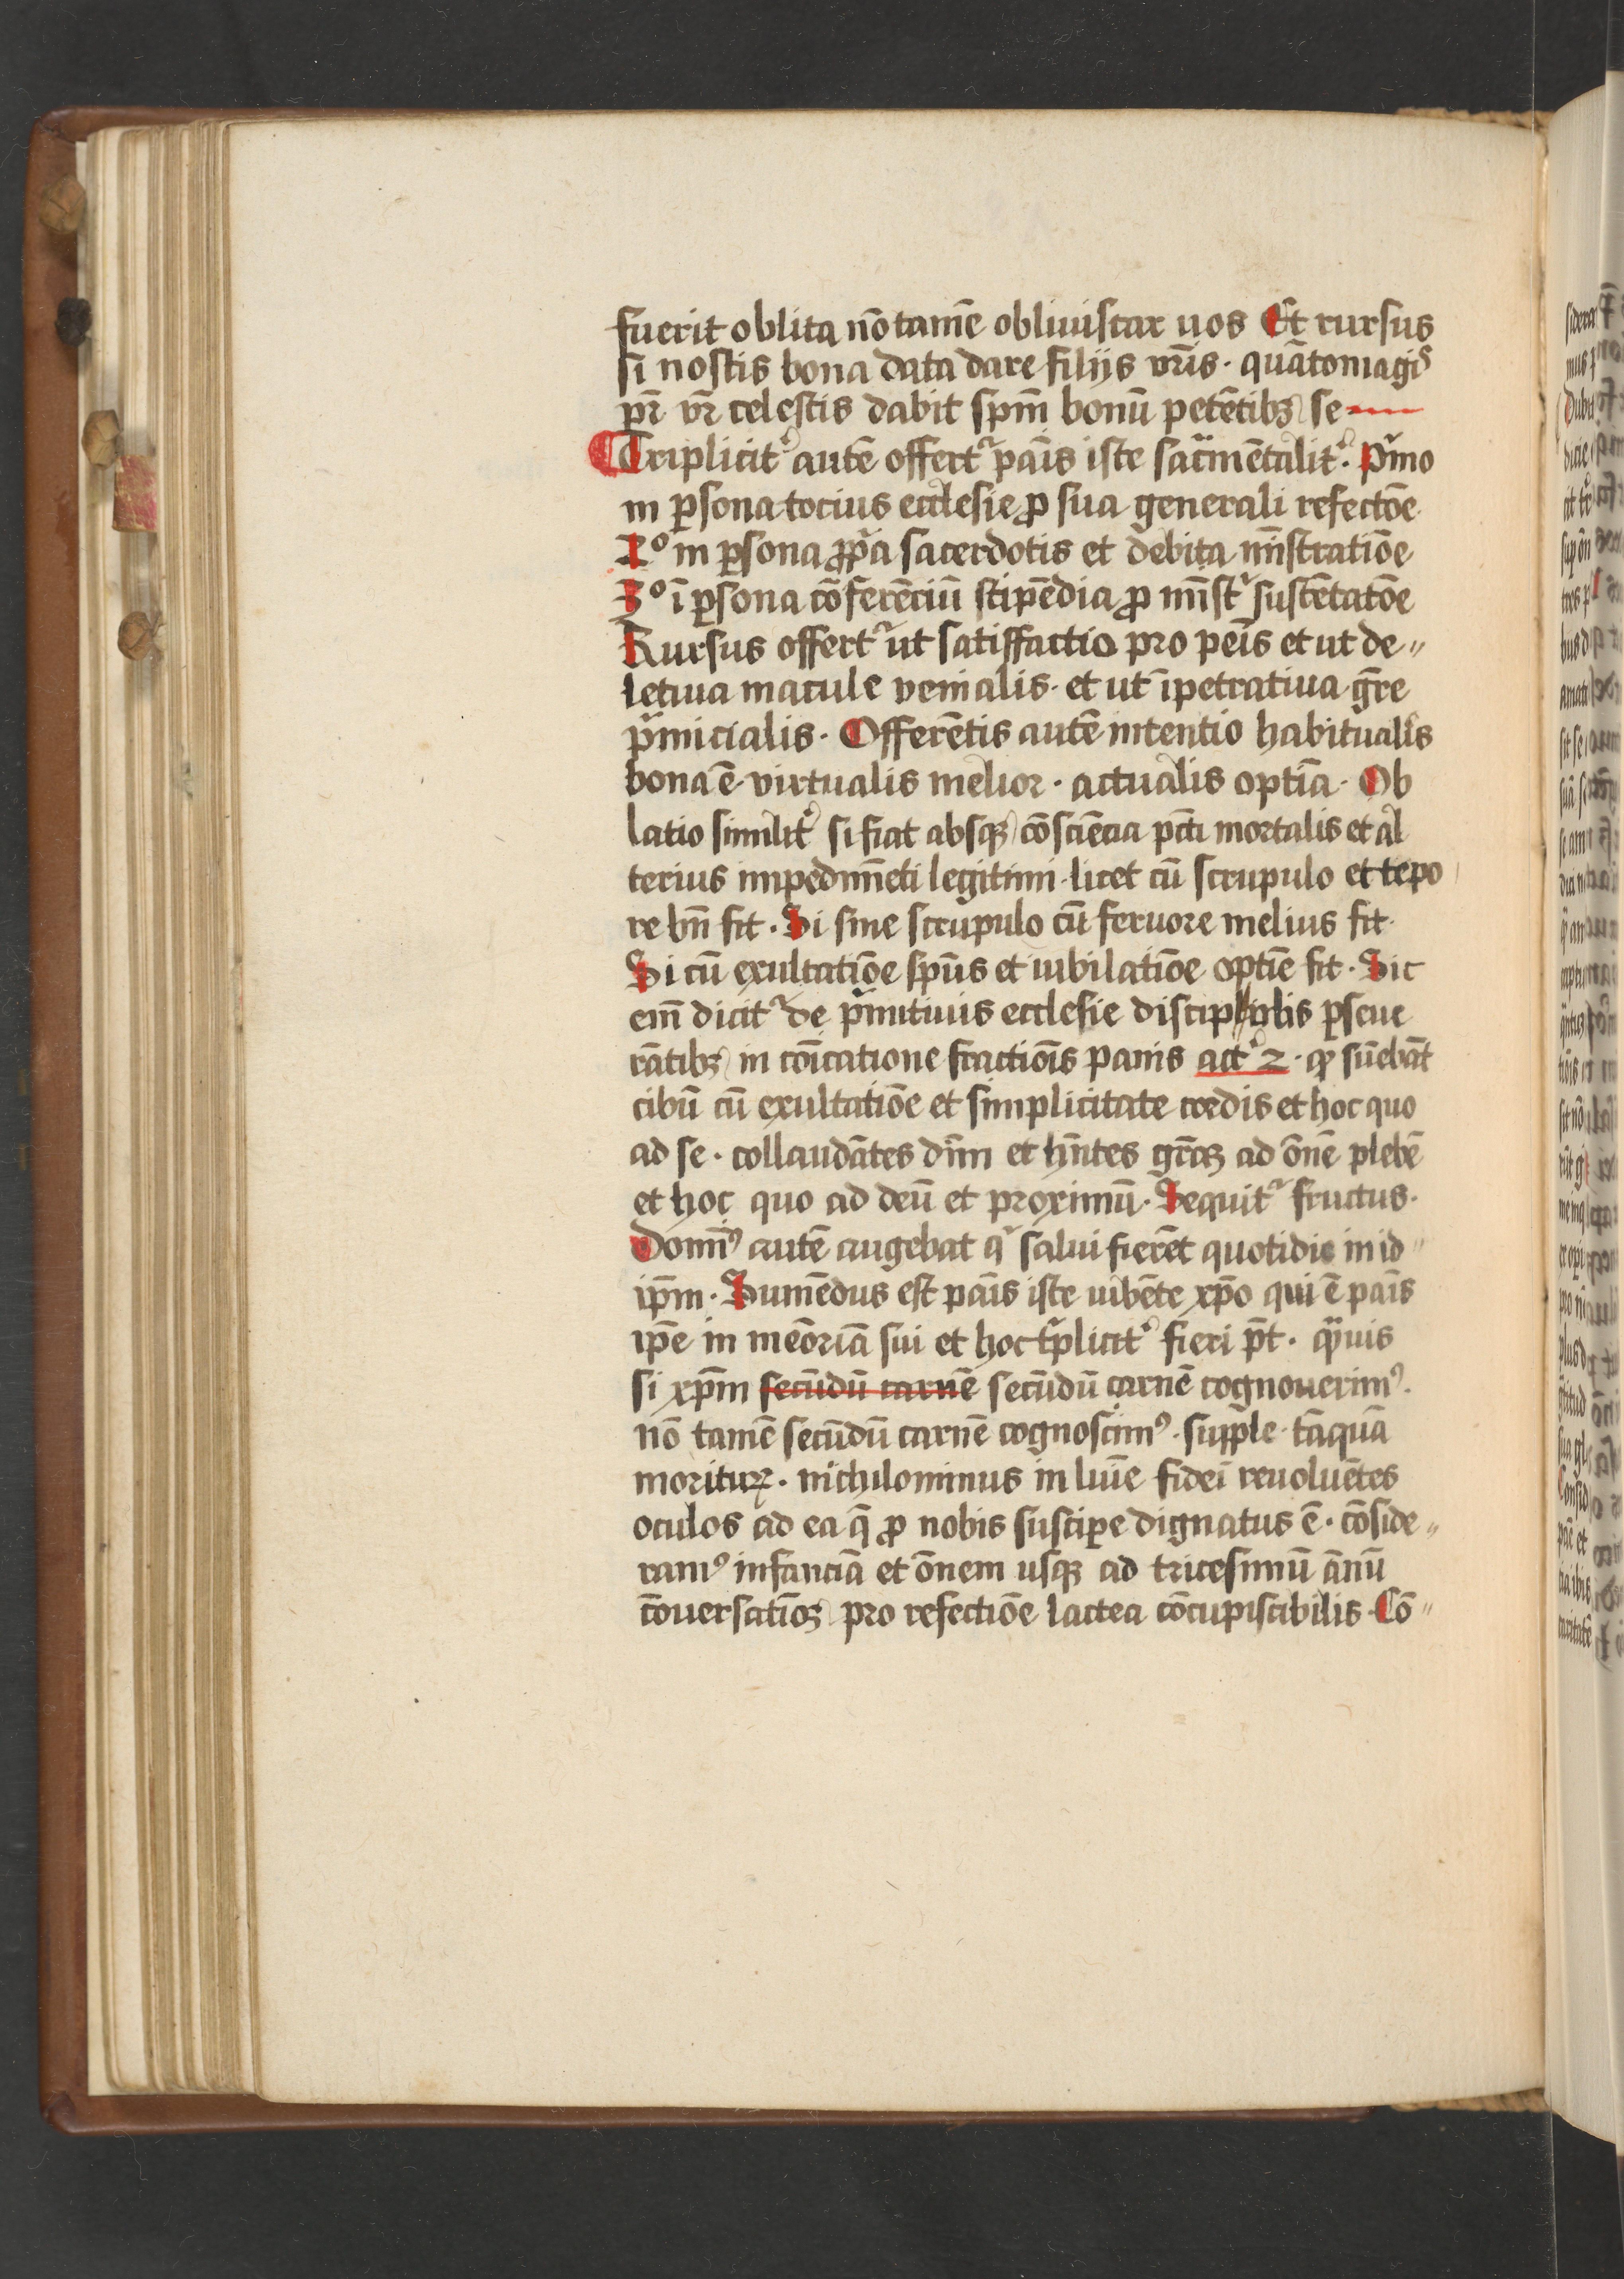 fuerit oblita nō tamē obliuiscar uos Et rursus
si nostis bona data dare filijs vr̄is · quāto magis
pr̄ vr̄ celestis dabit sp̄m bonū petētibꝫ se
Triplicit᷑ autē offert᷑ pāis iste sacͣmētalit᷑ · Pͥmo
in ꝑsona tocius ecclesie ꝓ sua generali refectōe
2° in ꝑsona ꝓpͥa sacerdotis et debita mīstratiōe
3° ī ꝑsona cōferēciū stipēdia ꝓ mīst᷑ sustētatōe
Rursus offert᷑ ut satisfactio pro peīs et ut de〃
letiua macule venialis · et ut īpetratiua gr̄e
pͥmicialis · Offerētis autē intentio habitualis
bona ē · virtualis melior · actualis optīa · Ob
latio similit᷑ si fiat absqꝫ cōsciēcia pctī mortalis et al
terius impedimēti legitimi · licet cū scrupulo et tepo
re bn̄ fit · Si sine scrupulo cū feruore melius fit ·
Si cū exultatiōe sp̄us et iubilatiōe optīe fit · Sic
em̄ dicit᷑ de pͥmitiuis ecclesie discipulis ꝑseue
rātibꝫ in cōicatione fractiōis panis act᷑ 2 · ꝙ sūebāt
cibū cū exultatiōe et simplicitate cordis et hoc quo
ad se · collaudātes dn̄m et hn̄tes gr̄aꝫ ad ōnē plebē
et hoc quo ad deū et proximū · Sequit᷑ fructus ·
Domīꝰ autē augebat qͥ salui fierēt quotidie in id〃
ip̄m · Sumēdus est pāis iste iubēte xp̄o qui ē pāis
ip̄e in meōriā sui et hoc tͥplicit᷑ fieri pt̄ · qͣuis
si xp̄m secūdū carnē secūdū carnē cognouerimꝰ ·
nō tamē secūdū carnē cognoscimꝰ · supple · tāquā
morituꝝ · nichilominus in luīe fidei reuoluētes
oculos ad ea q̄ ꝓ nobis suscipe dignatus ē · cōside〃
ramꝰ infanciā et ōnem usqꝫ ad tricesimū ānū
cōuersatiōꝫ pro refectiōe lactea cōcupiscibilis · Cō〃